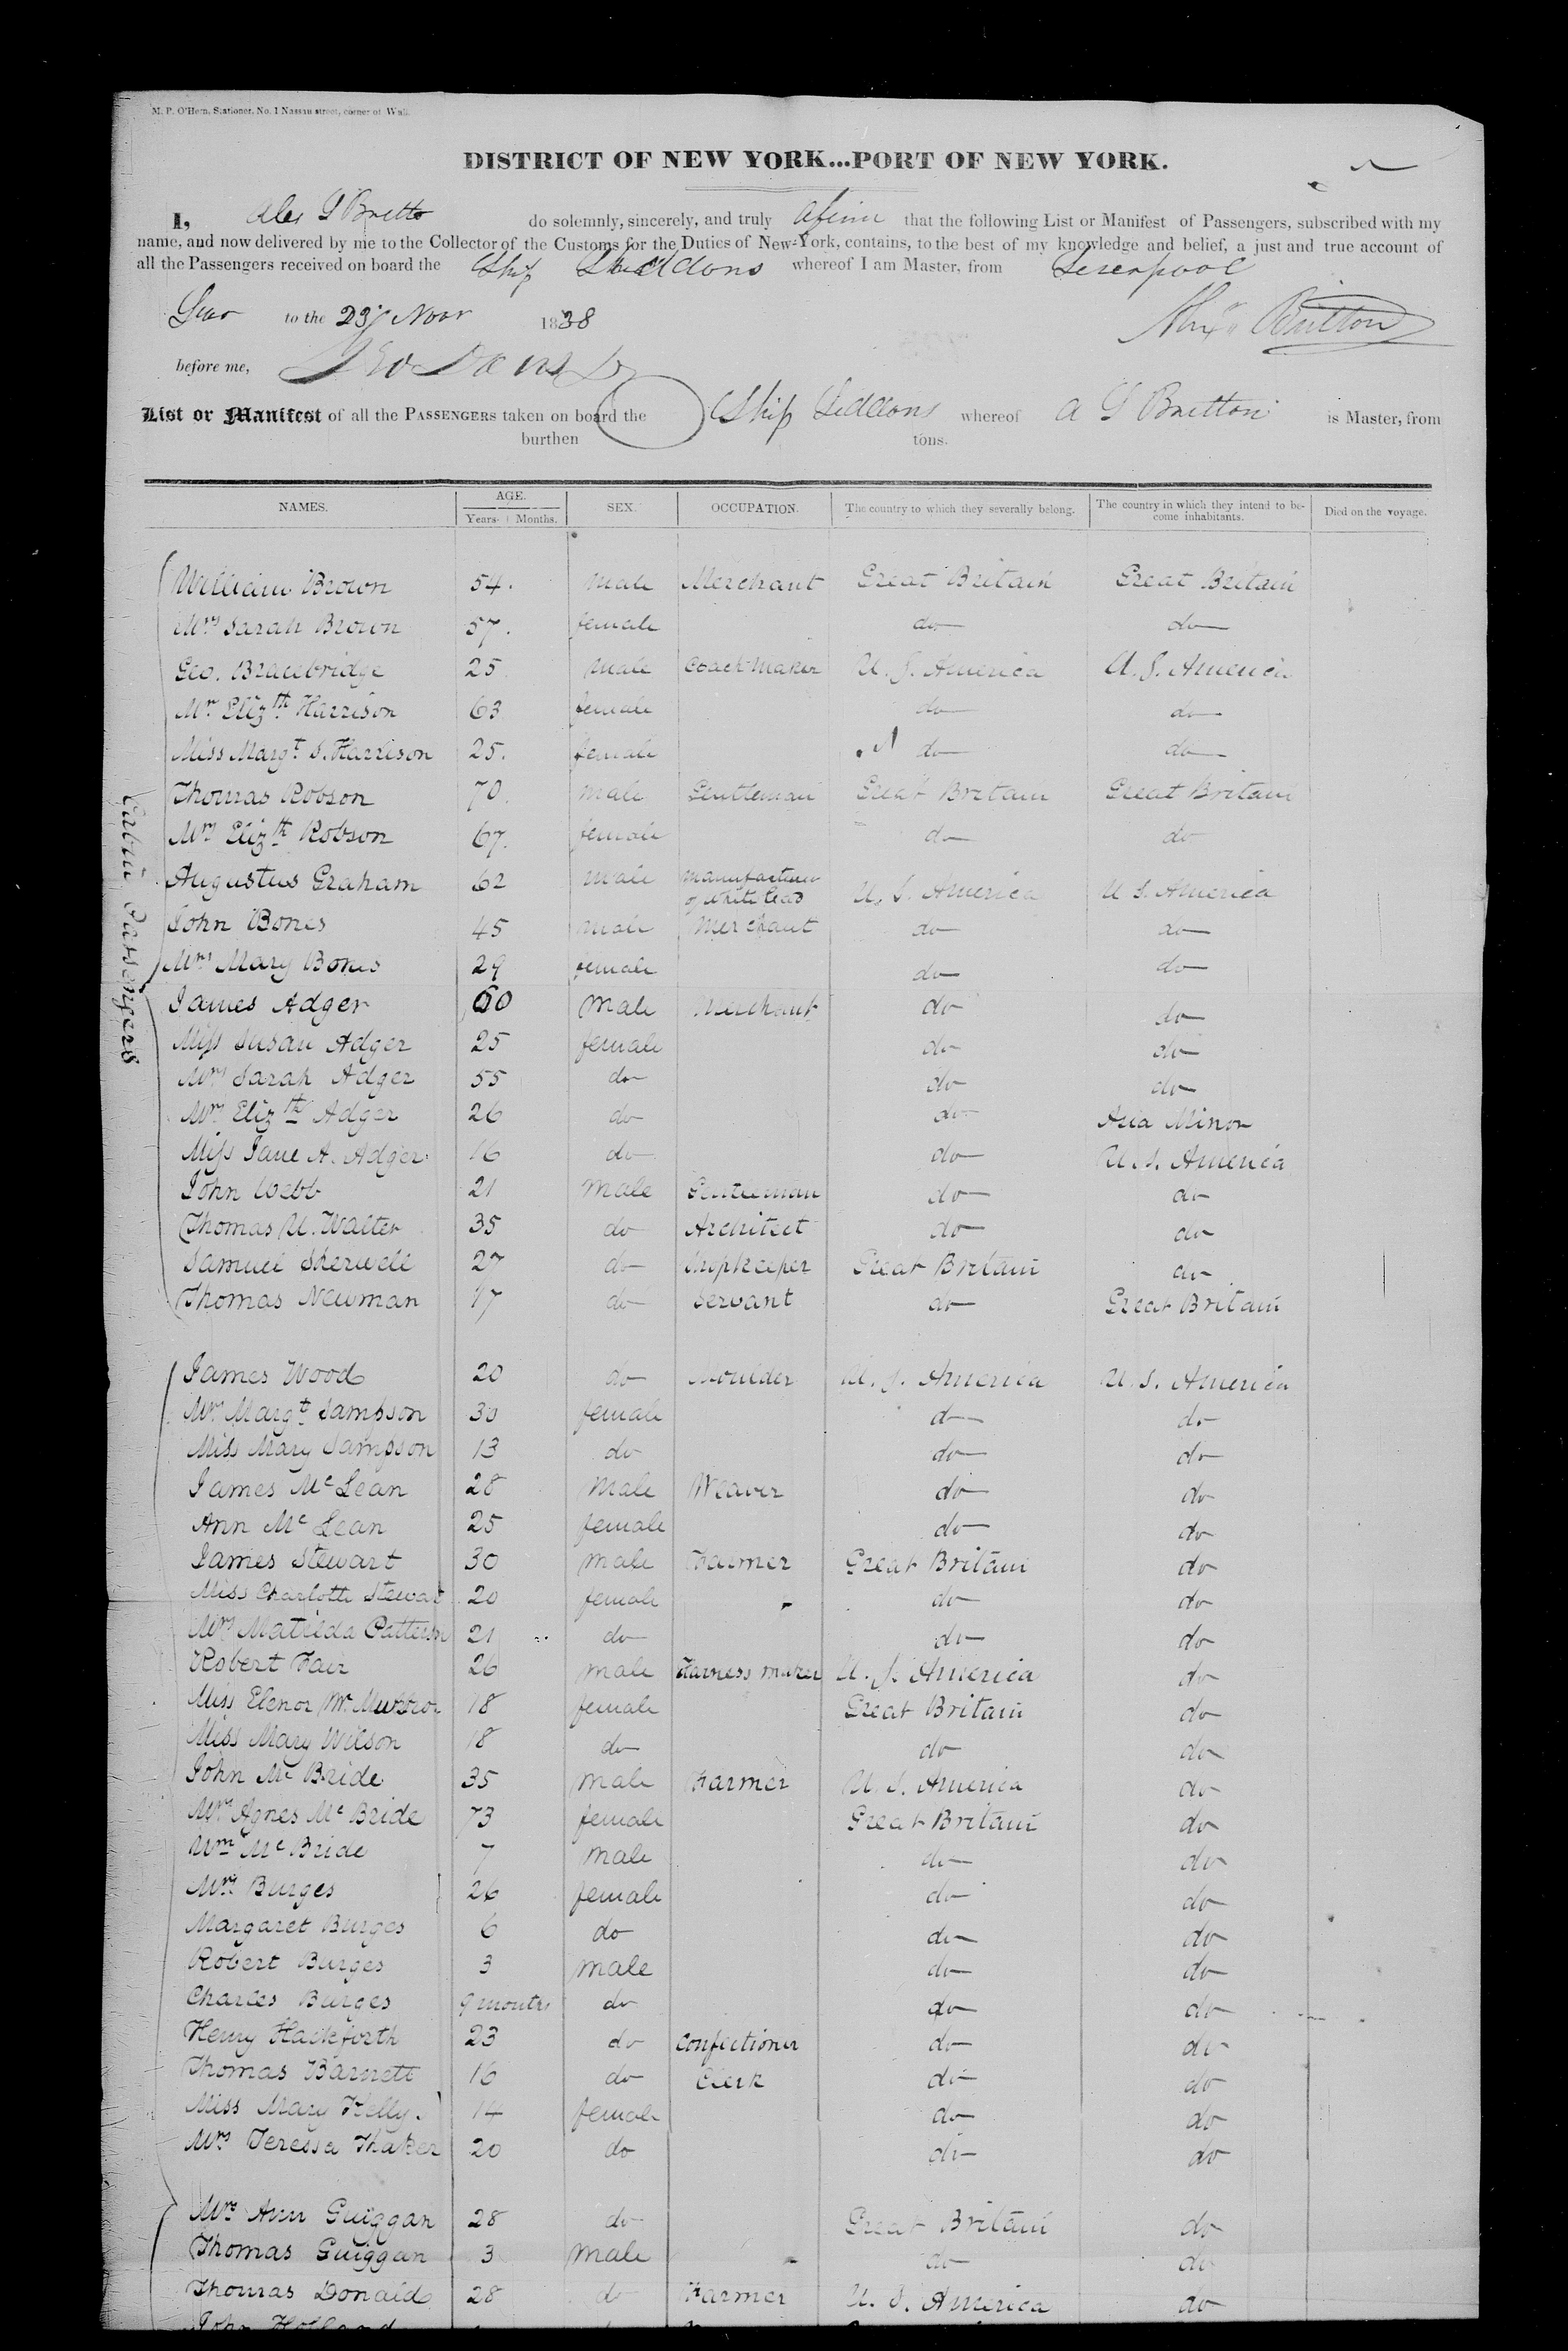 M. P. O'Hern, Stationer, No. 1 Nassau street, corner of Wall.
DISTRICT OF NEW YORK...PORT OF NEW YORK.
I, Alex S Britto do solemnly, sincerely, and truly afirm that the following List or Manifest of Passengers, subscribed with my
name, and now delivered by me to the Collector of the Customs for the Duties of New-York, contains, to the best of my knowledge and belief, a just and true account of
all the Passengers received on board the Ship Siddons whereof I am Master, from Liverpool
to the 23 Novr 1838
Britton
before me, Geo Davis
List or Manifest of all the PASSENGERS taken on board the Ship Siddons whereof A S Britton is Master, from
burthen tons.
NAMES. AGE. Years. Months. SEX. OCCUPATION. The country to which they severally belong. The country in which they intend to become inhabitants. Died on the voyage.
Cabin Passengers
William Brown 54. male Merchant Great Britain Great Britain
Mrs Sarah Brown 57. female do do
Geo. Bracebridge 25 male Coach Maker U.S. America U.S. America
Mrs Elizth Harrison 63 female do do
Miss Margt S. Harrison 25. female do do
Thomas Robson 70. male Gentleman Great Britain Great Britain
Mrs Elizth Robson 67. female do do
Augustus Graham 62 male manufacturer of white lead U.S. America U S. America
John Bones 45 male Merchant do do
Mrs Mary Bones 29 female do do
James Adger 60 male Merchant do do
Miss Susan Adger 25 female do do
Mrs Sarah Adger 55 do do do
Mrs Elizth Adger 26 do do Asia Minor
Miss Jane A. Adger 16 do do U.S. America
John Webb 21 male Gentleman do do
Thomas U. Walter 35 do Architect do do
Samuel Sherwell 27 do Shopkeeper Great Britain do
Thomas Newman 17 do Servant do Great Britain
James Wood 20 do Moulder U.S. America U.S. America
Mrs Margt Sampson 30 female do do
Miss Mary Sampson 13 do do do
James Mc Lean 28 male Weaver do do
Ann Mc Lean 25 female do do
James Stewart 30 male Farmer Great Britain do
Miss Charlotte Stewart 20 female do do
Mrs Matilda Patterson 21 do do do
Robert Fair 26 male Harness maker U.S. America do
Miss Elenor 18 female Great Britain do
Miss Mary Wilson 18 do do do
John Mc Bride 35 male Farmer U.S. America do
Mrs Agnes Mc Bride 73 female Great Britain do
Wm Mc Bride 7 male do do
Mrs Burges 26 female do do
Margaret Burges 6 do do do
Robert Burges 3 male do do
Charles Burges 9 months do do do
Henry Hackforth 23 do Confectioner do do
Thomas Barnett 16 do Clerk do do
Miss Mary Kelly. 14 female do do
Mrs Teressa Thaker 20 do do do
Mrs Ann Guiggan 28 do Great Britain do
Thomas Guiggan 3 male do do
Thomas Donald 28 do Farmer U.S. America do
John Holland